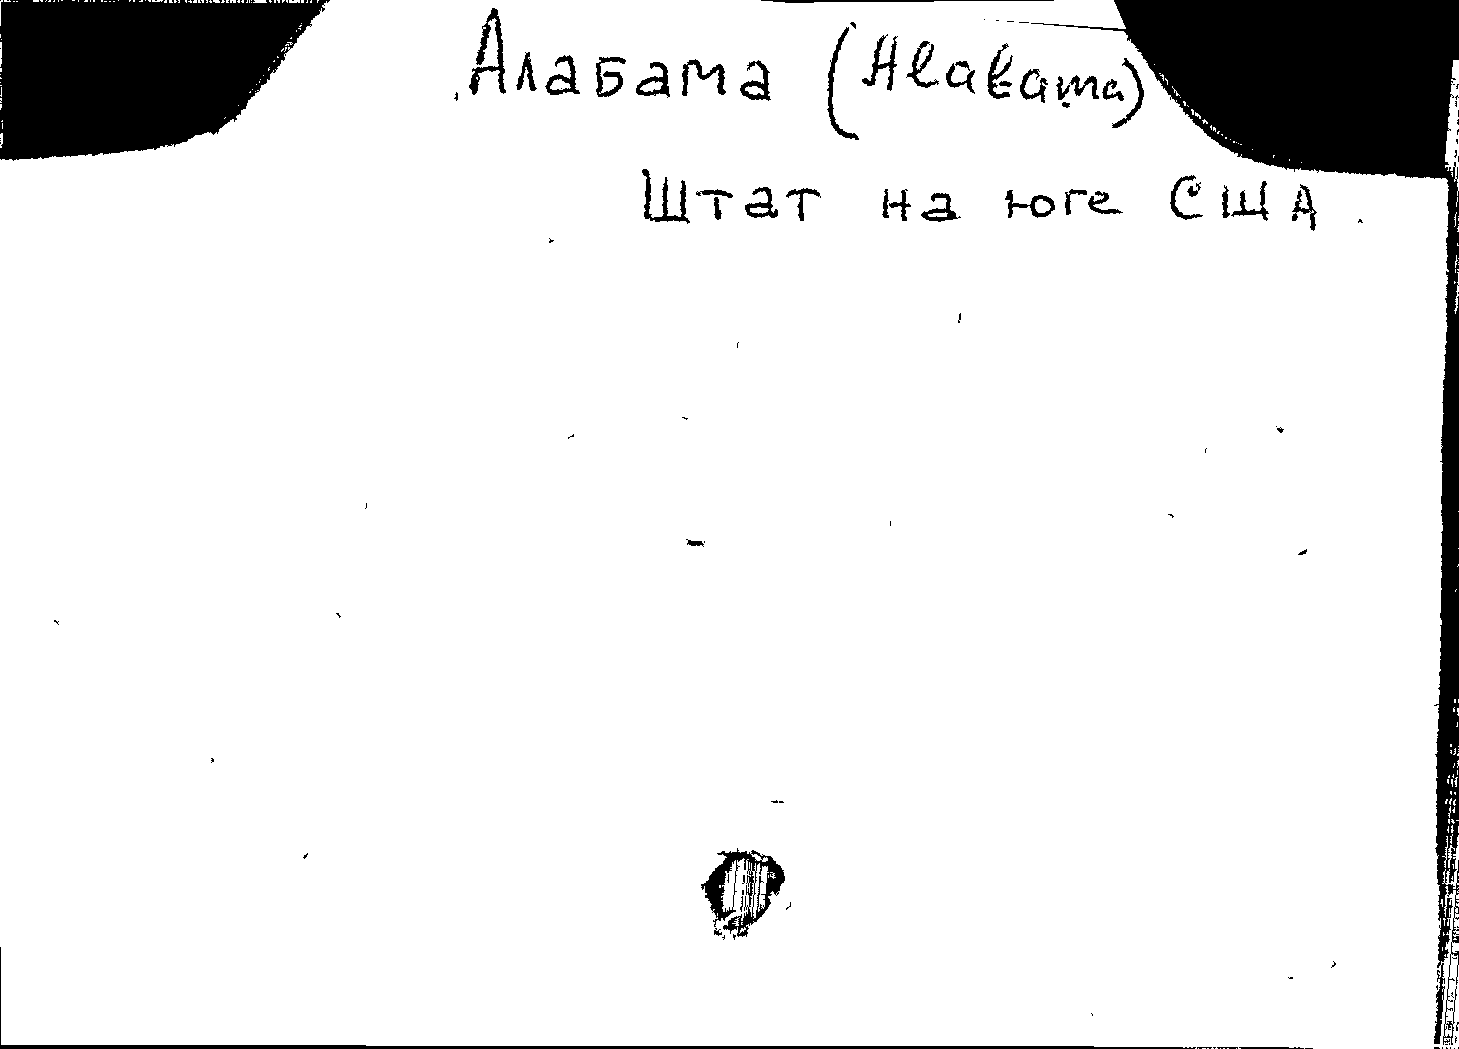 Алабама (Alabama)
Штат на юге США